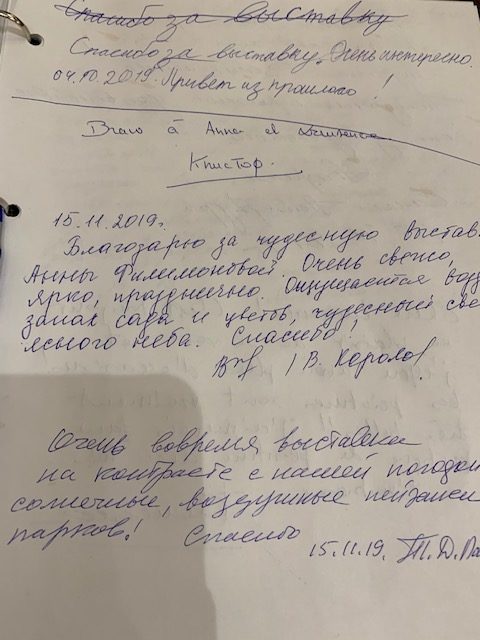 Спасибо за выставку
Спасибо за выставку. Очень интересно.
04.10.2019. Привет из прошлого !
Bravo à Anna et
Кпистор.
15.11.2019г.
Благозарю за чудесную выстав
Анны Филимоновой. Очень свежо,
ярко, празднично. Ощущается возд
запах сада и цветов, чудесный све
ясного неба. Спасибо!
/ В. Королов
Очень вовремя выставка
на контрасте с нашей погодой
солнечные, воздушные пейзажи
парков! Спасибо
15.11.19. Т.Д.Па